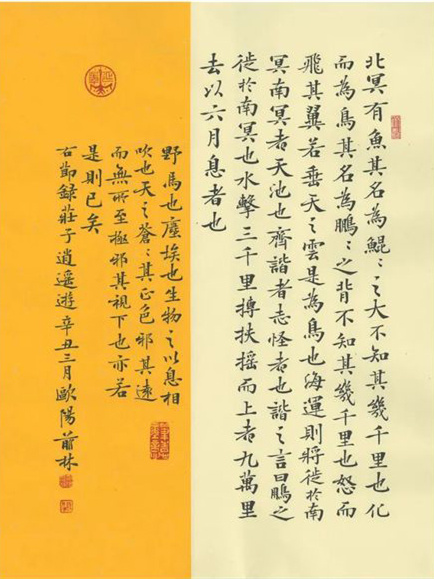 北冥有魚其名為鯤〻之大不知其幾千里也化
而為鳥其名為鵬〻之背不知其幾千里也怒而
飛其翼若垂天之雲是為鳥也海運則將徙於南
冥南冥者天池也齊諧者志怪者也諧之言曰鵬之
徙於南冥也水擊三千里摶扶摇而上者九萬里
去以六月息者也
野馬也塵埃也生物之以息相
吹也天之蒼〻其正色邪其遠
而無所至極邪其視下也亦若
是則已矣
右節録莊子逍遥遊辛丑三月歐陽林